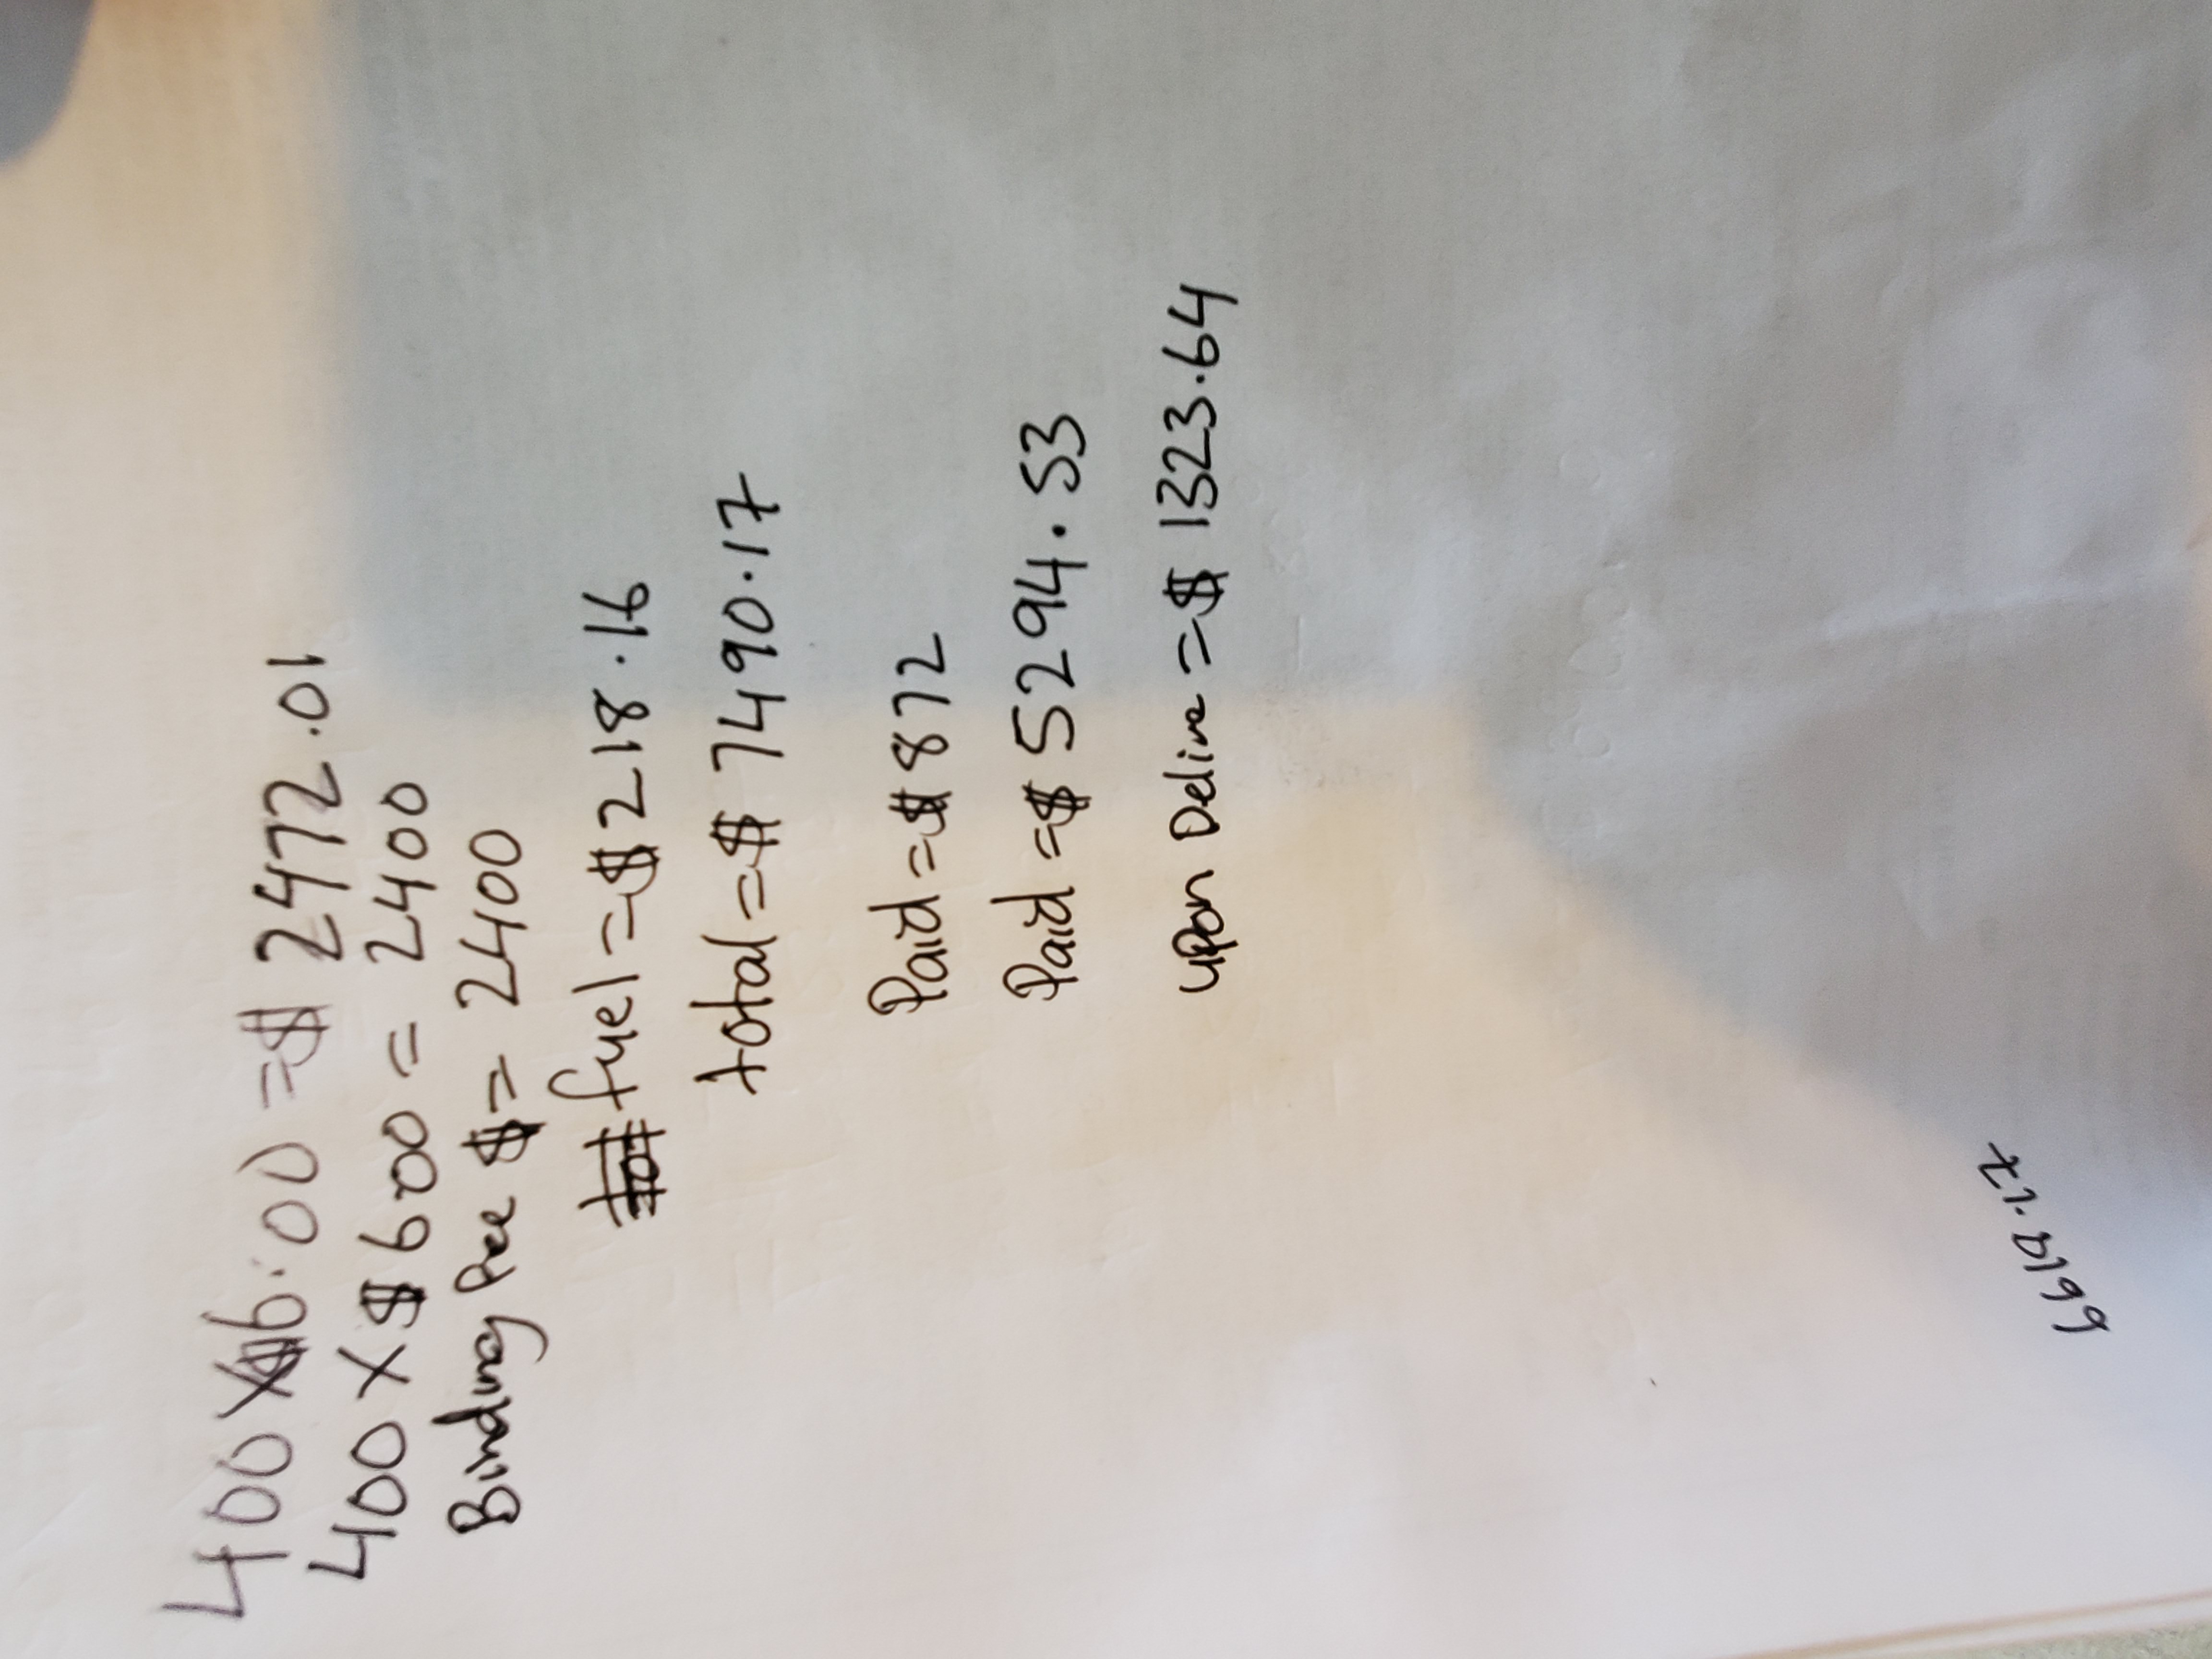 400 X $6.00 = $ 2472.01
400 X $ 600 = 2400
Binding Pee $ = 2400
fuel = $ 218.16
total = $ 7490.17
Paid = $ 872
Paid = $ 5294.53
upon Delive = $ 1323.64